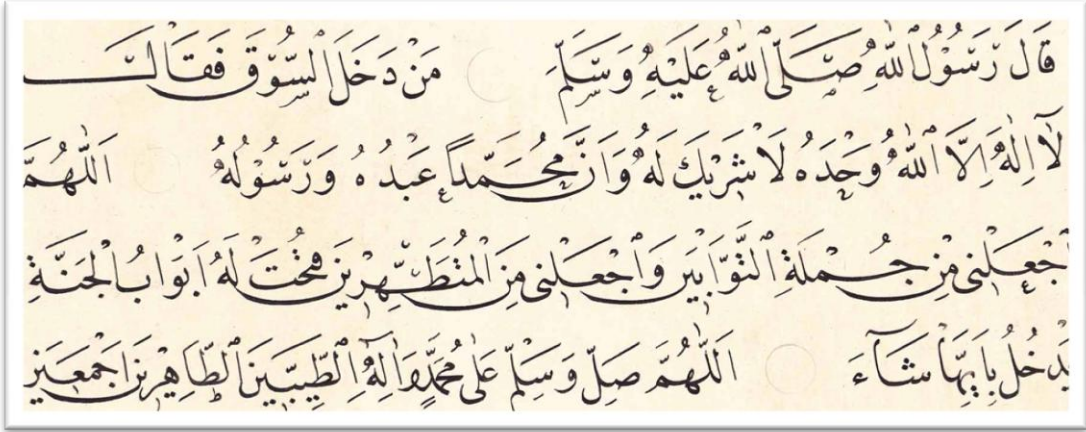 قَالَ رَسُوْلُ اللهِ صَلَّى اللهُ عَلَيْهِ وَسَلَّمَ مَنْ دَخَلَ السُّوْقَ فَقَالَ
لَآ اِلٰهَ اِلَّا اللهُ وَحْدَهُ لَا شَرِيْكَ لَهُ وَاَنَّ مُحَمَّدًا عَبْدُهُ وَرَسُوْلُهُ اَللّٰهُمَّ
اجْعَلْنِى مِنْ جُمْلَةِ التَّوَّابِيْنَ وَاجْعَلْنِى مِنَ الْمُتَطَهِّرِيْنَ فُتِحَتْ لَهُ اَبْوَابُ الْجَنَّةِ
يَدْخُلُ بِاَيِّهَا شَآءَ اَللّٰهُمَّ صَلِّ وَسَلِّمْ عَلٰى مُحَمَّدٍ وَاٰلِهِ الطَّيِّبِيْنَ الطَّاهِرِيْنَ اَجْمَعِيْنَ